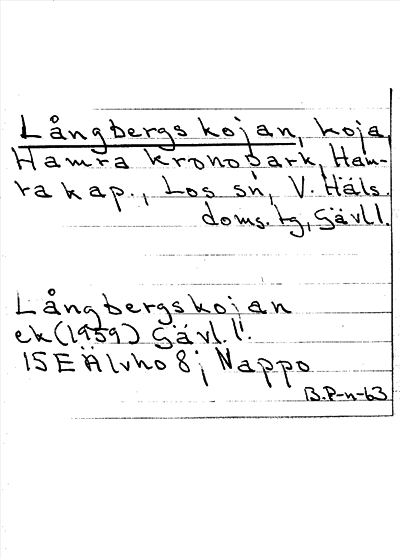 Långbergskojan, koja,
Hamra kronopark, Ham-
ra kap., Los sn, V. Häls.
doms. tg, Gävl.l.
Långbergskojan
ek (1959) Gävl.l.
15E Älvho 8j Nappo
B.P-n-63